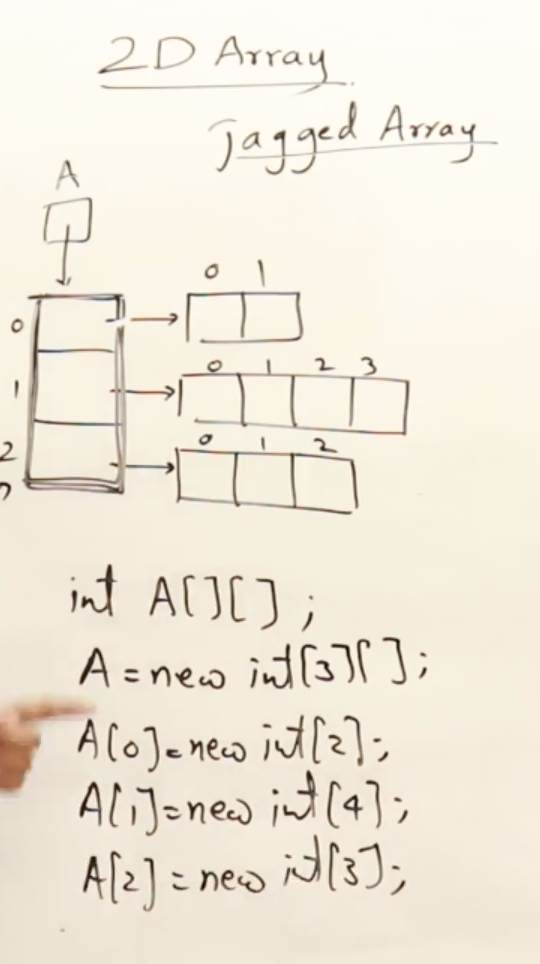 2D Array
Jagged Array
A
0 1
0
0 1 2 3
1
0 1 2
2
int A[][];
A=new int[3][];
A[0]=new int[2];
A[1]=new int[4];
A[2]=new int[3];